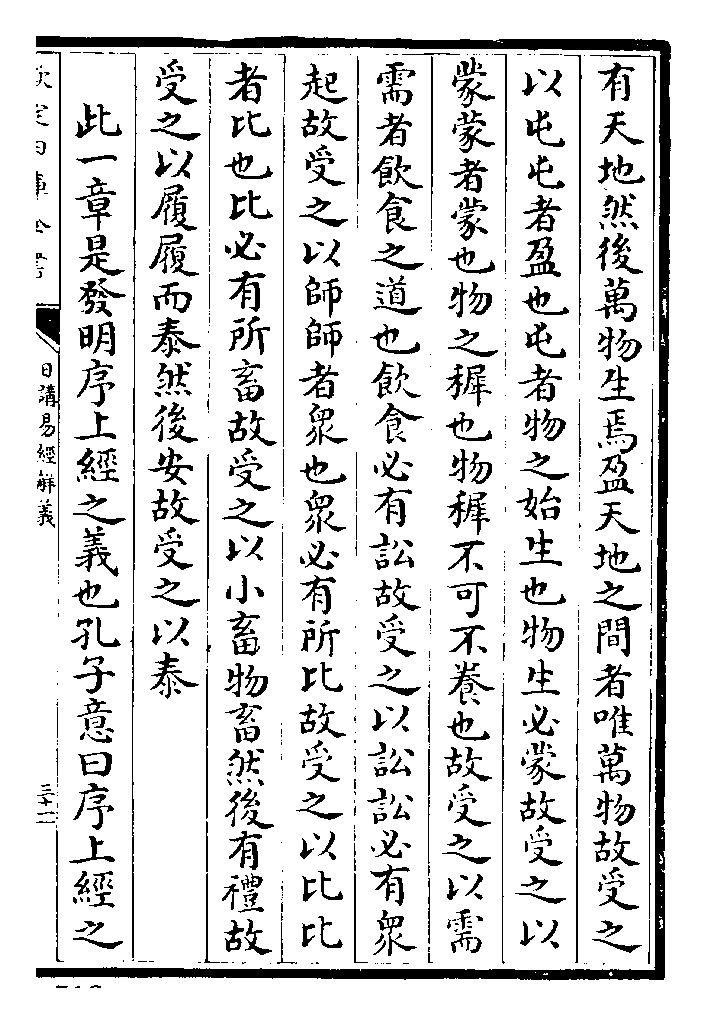 有天地然後萬物生焉盈天地之間者唯萬物故受之
以屯屯者盈也屯者物之始生也物生必蒙故受之以
蒙蒙者蒙也物之穉也物穉不可不養也故受之以需
需者飲食之道也飲食必有訟故受之以訟訟必有衆
起故受之以師師者衆也衆必有所比故受之以比比
者比也比必有所畜故受之以小畜物畜然後有禮故
受之以履履而泰然後安故受之以泰
此一章是發明序上經之義也孔子意曰序上經之
欽定四庫全書
日講易經解義
三十一